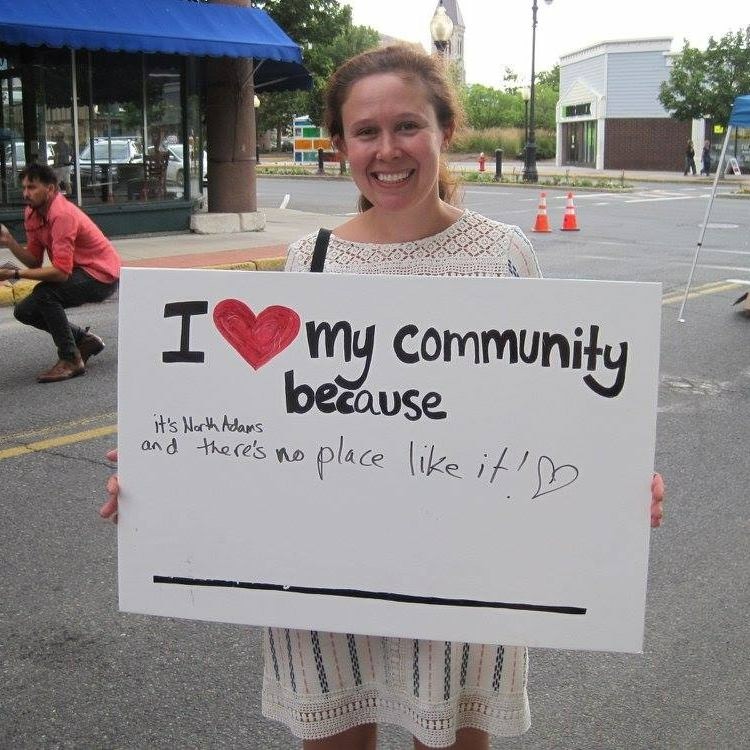 I ♥ my community
because
it's North Adams
and there's no place like it! ♡